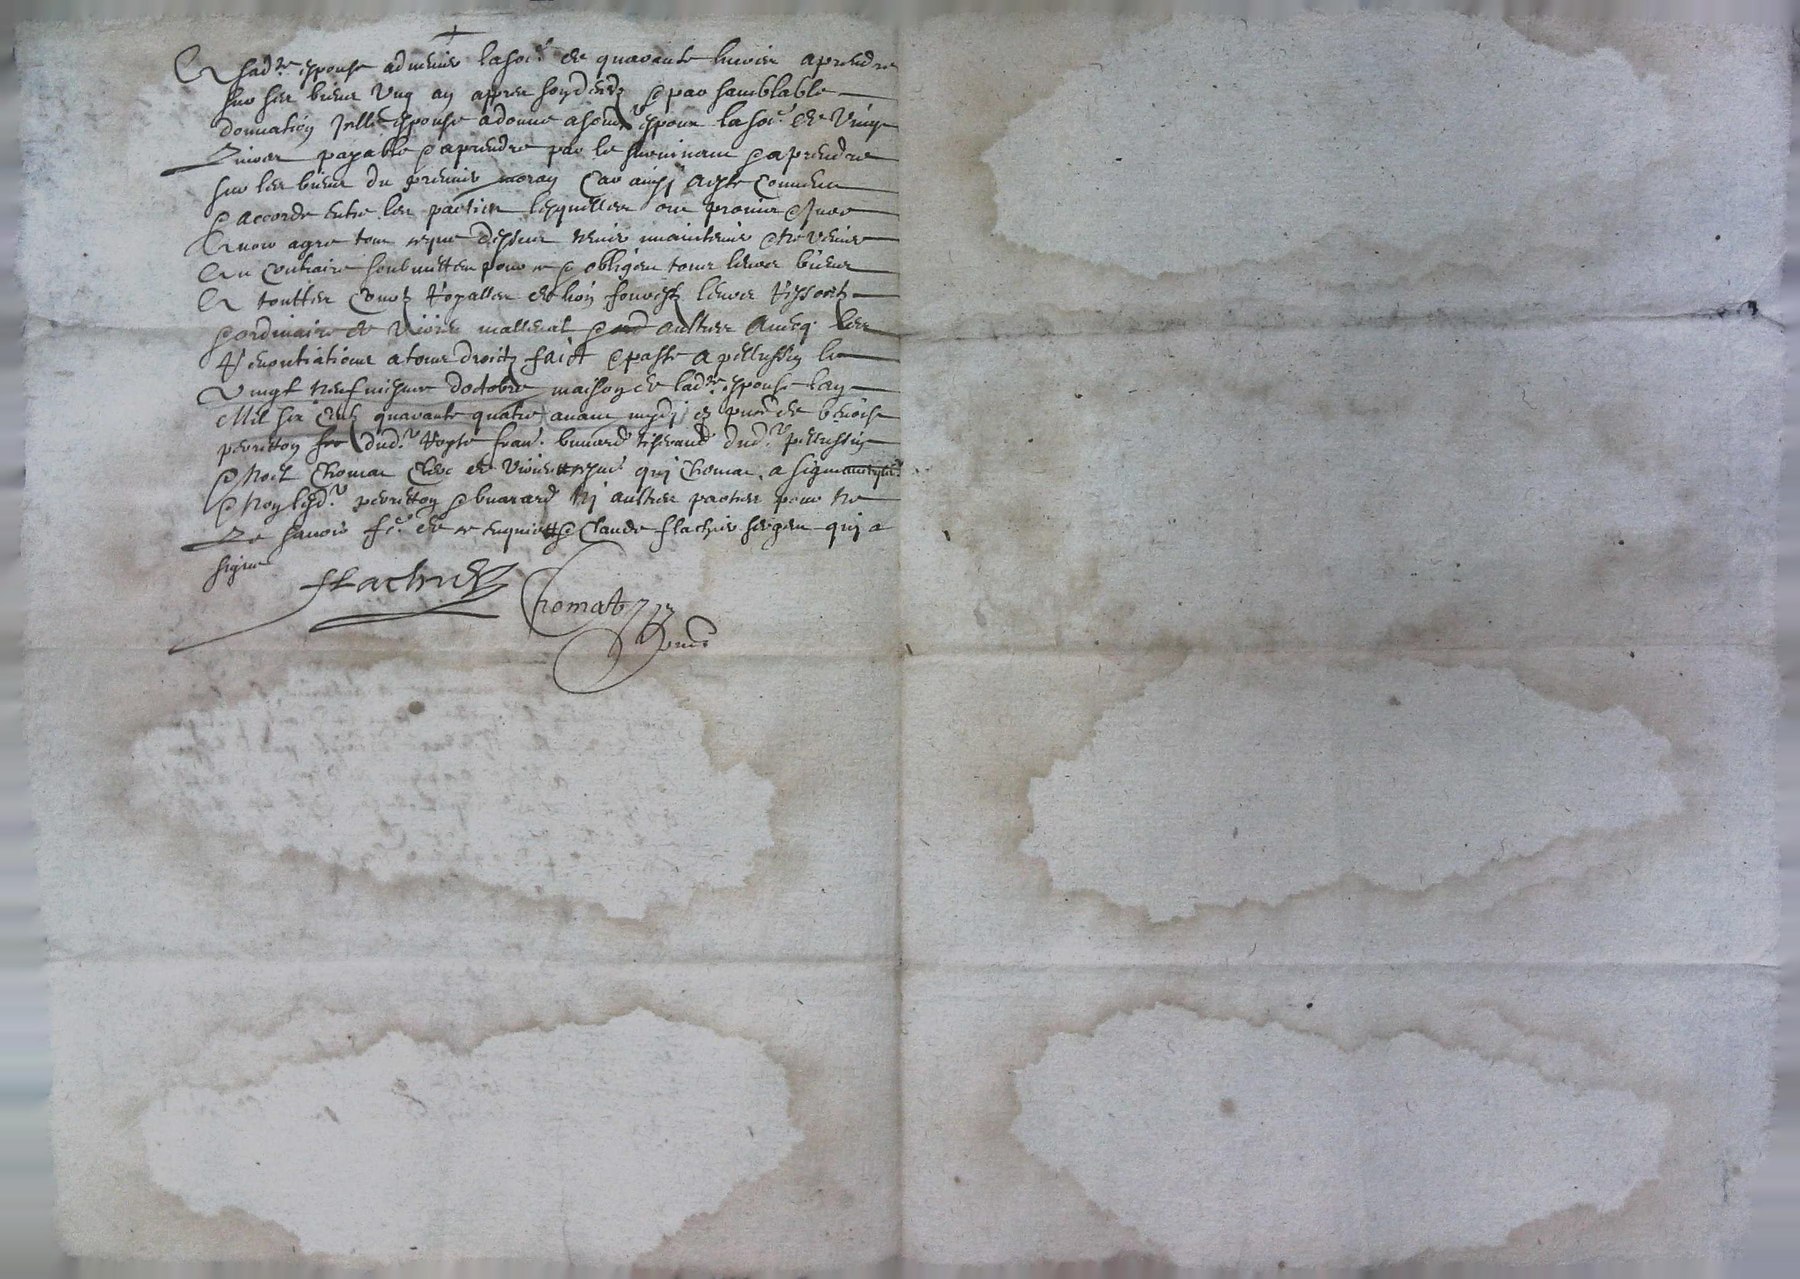 A lad.te espouse advenir la so.e de quarante livres a prendre
sur ses biens ung an apres son deces & par semblable
donnation jcelle espouse a donné a son d. espoux la so.e de vingt
livres payable & a prendre par le survivant & a prendre
sur les biens du premier moran Car ainsi a esté convenu
& accordé entre les parties lesquelles ont promis & juré
avoir agré tout ce que dessus tenir maintenir & ne venir
Au contraire soubmettan pour ce & obligen tous leurs biens
A touttes Cours royalles de leurs ressortz
& ordinaire de malleval & aultres avecq les
renontiations a tous droictz faict & passé a pellussin le
vingt neufviesme doctobre maison de lad.te espouse lan
Mil six centz quarante quatre avant mydj ez pnce de benoist
perretton dud. fran. buiard tisserand dud. pellussin
& Noel Chomat clerc de qui Chomat a signé
& non lesd. perretton & buiard nj aultres parties pour ne
le savoir de ce enquis & Claude flachier sergen qui a
signé
flachier Chomat